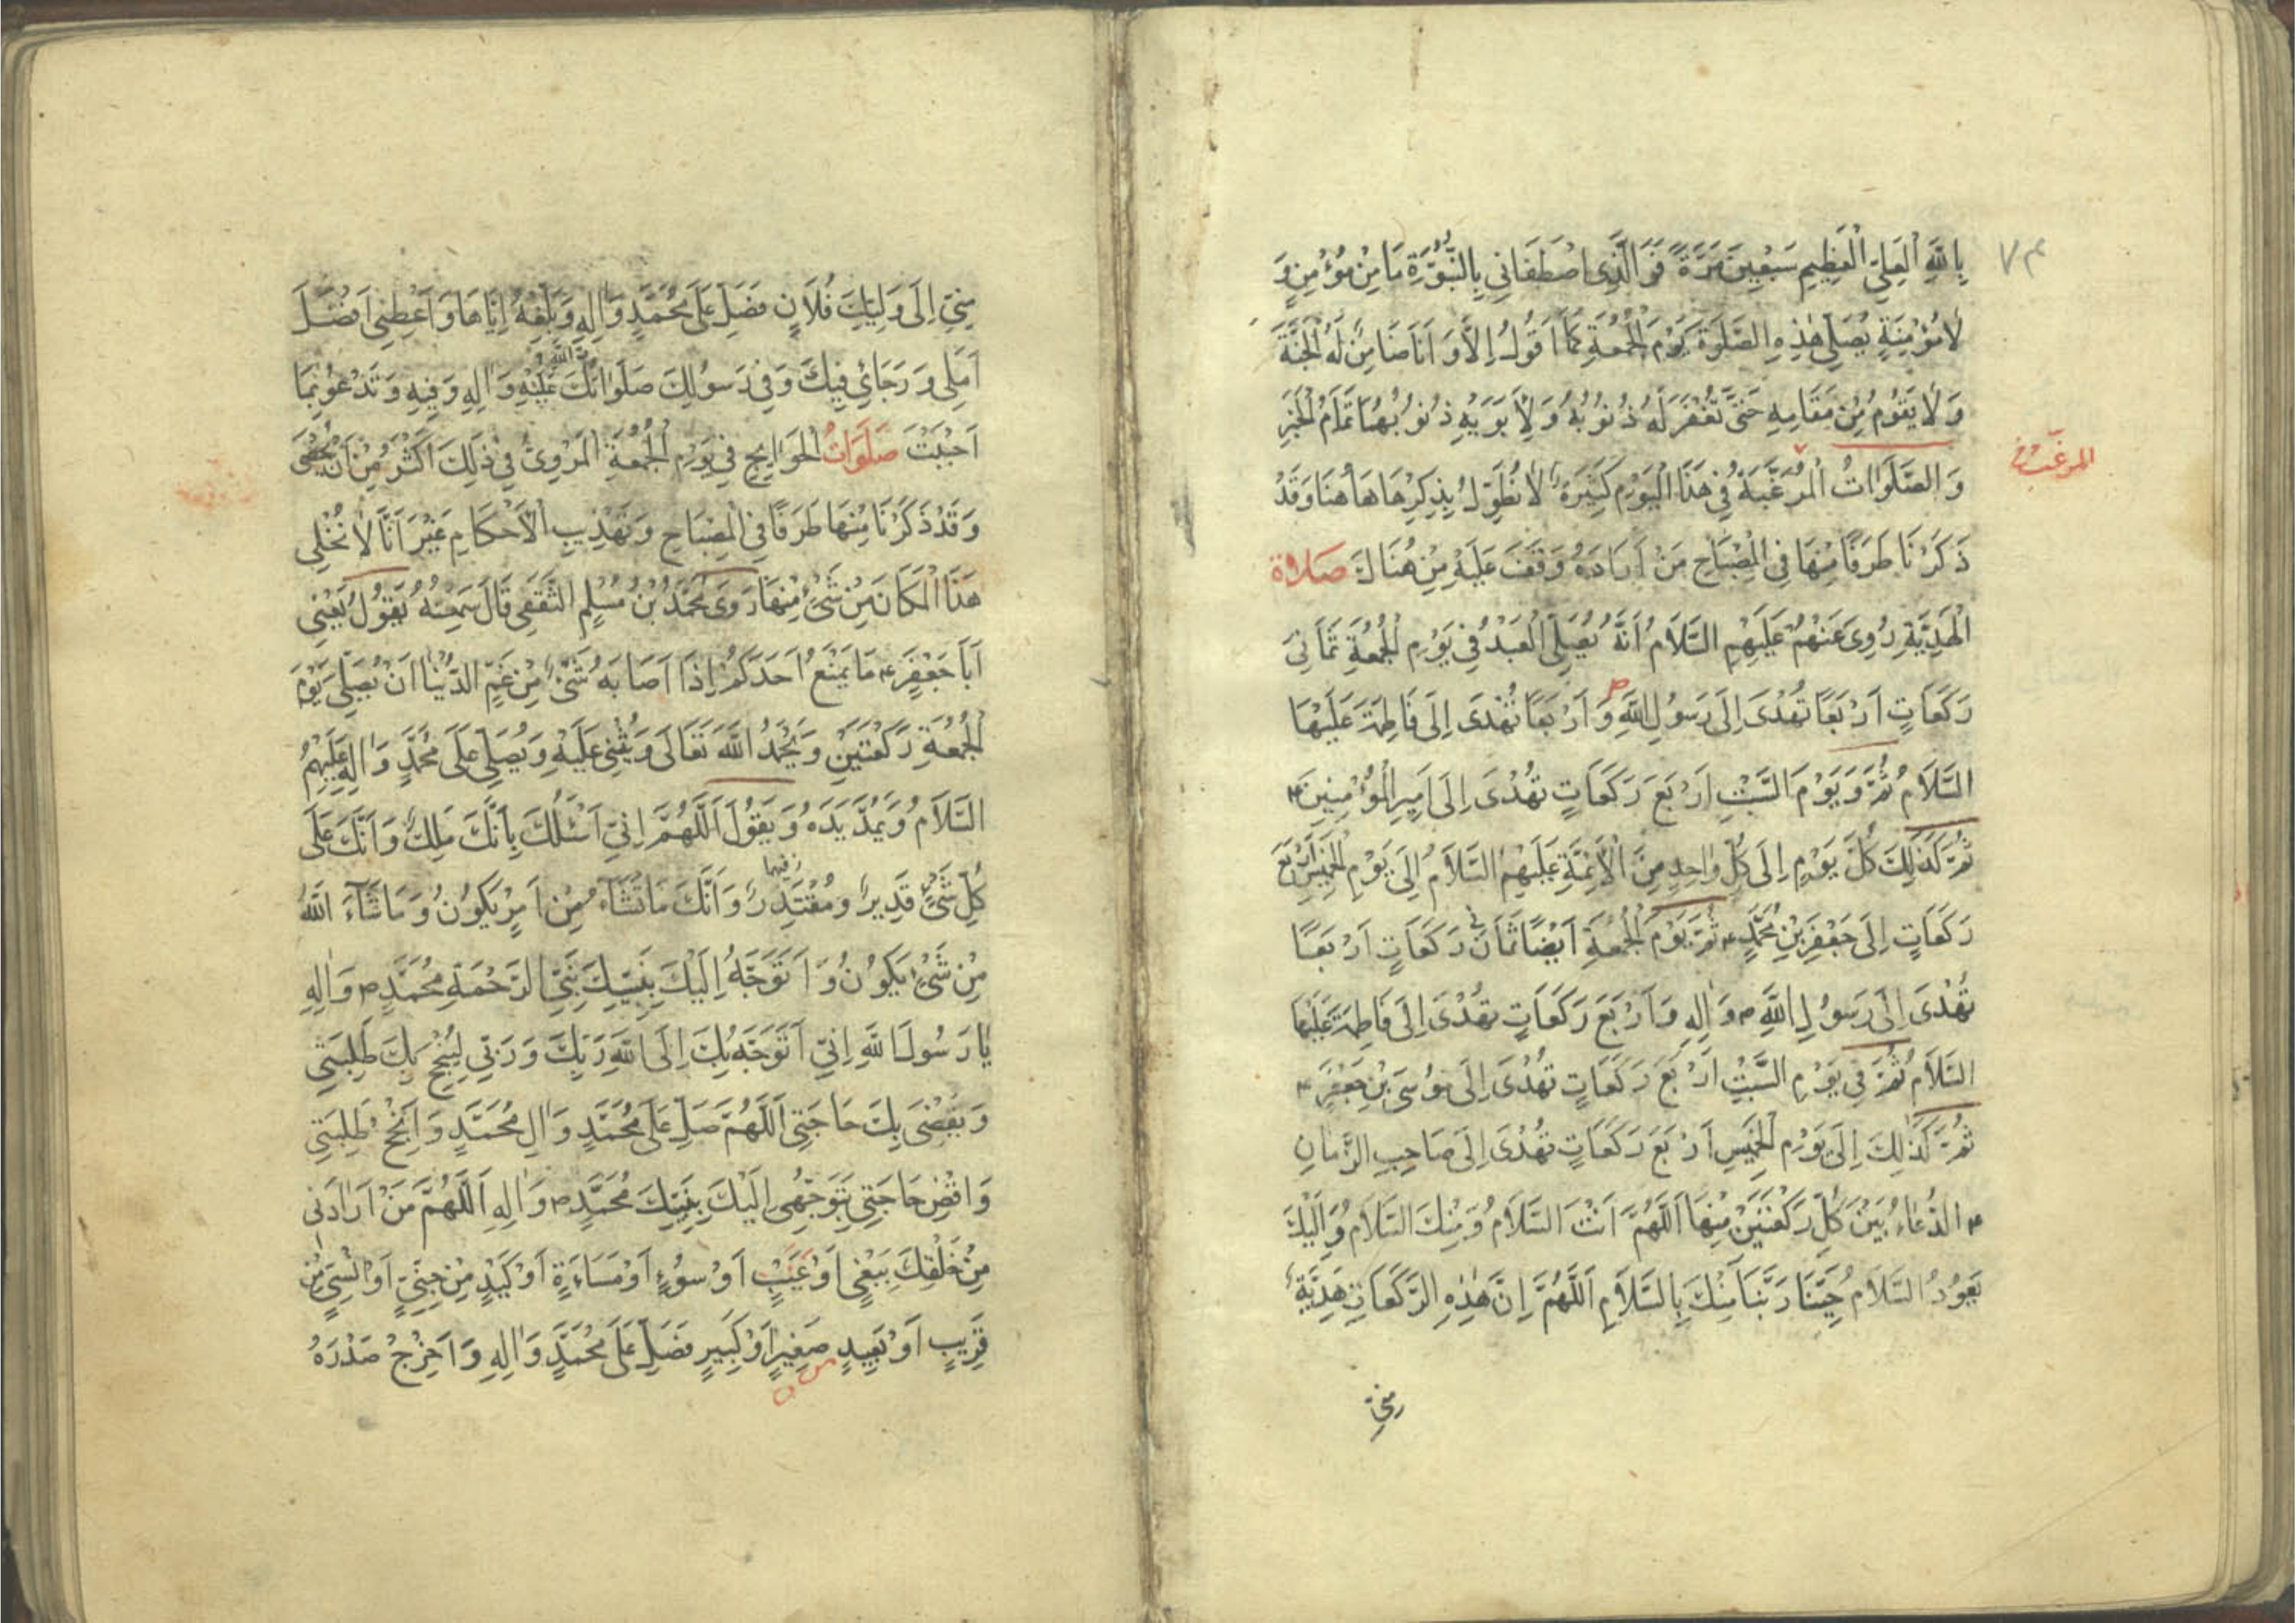 ٧٤
بِاللهِ الْعَلِيِّ الْعَظِيمِ سَبْعِينَ مَرَّةً فَوَالَّذِى اصْطَفَانِي بِالنُّبُوَّةِ مَا مِنْ مُؤْمِنٍ وَ
لَا مُؤْمِنَةٍ يُصَلِّي هٰذِهِ الصَّلٰوةَ يَوْمَ الْجُمُعَةِ كَمَا اَقُولُ اِلَّا وَ اَنَا ضَامِنٌ لَهُ الْجَنَّةَ
وَ لَا يَقُومُ مِنْ مَقَامِهِ حَتَّى تُغْفَرَ لَهُ ذُنُوبُهُ وَ لِاَبَوَيْهِ ذُنُوبُهُمَا تَمَامَ الْخَبَرِ
وَ الصَّلَوَاتُ الْمُرَغَّبَةُ فِي هَذَا الْيَوْمِ كَثِيرَةٌ لَا نُطَوِّلُ بِذِكْرِهَا هٰاهُنَا وَقَدْ
المرغّب
ذَكَرْنَا طَرَفًا مِنْهَا فِي الْمِصْبَاحِ مَنْ اَرَادَهُ وَقَفَ عَلَيْهِ مِنْ هُنَاكَ صلاة
الْهَدِيَّةِ رُوِىَ عَنْهُمْ عَلَيْهِمِ السَّلَامُ اَنَّهُ يُصَلِّي الْعَبْدُ فِي يَوْمِ الْجُمُعَةِ ثَمَانِيَ
رَكَعَاتٍ اَرْبَعًا تُهْدَى اِلَى رَسُولِ اللهِ ص وَ اَرْبَعًا تُهْدَى اِلَى فَاطِمَةَ عَلَيْهَا
السَّلَامُ ثُمَّ وَ يَوْمَ السَّبْتِ اَرْبَعَ رَكَعَاتٍ تُهْدَى اِلَى اَمِيرِ الْمُؤْمِنِينَ ع
ثُمَّ كَذٰلِكَ كُلَّ يَوْمٍ اِلَى كُلِّ وَاحِدٍ مِنَ الْاَئِمَّةِ عَلَيْهِمُ السَّلَامُ اِلَى يَوْمِ الْخَمِيسِ اَرْبَعَ
رَكَعَاتٍ اِلَى جَعْفَرِ بْنِ مُحَمَّدٍ ع ثُمَّ يَوْمَ الْجُمُعَةِ اَيْضًا ثَمَانَ رَكَعَاتٍ اَرْبَعًا
تُهْدَى اِلَى رَسُولِ اللهِ ص وَ اٰلِهِ وَ اَرْبَعَ رَكَعَاتٍ تُهْدَى اِلَى فَاطِمَةَ عَلَيْهَا
السَّلَامُ ثُمَّ فِي يَوْمِ السَّبْتِ اَرْبَعَ رَكَعَاتٍ تُهْدَى اِلَى مُوسَى بْنِ جَعْفَرٍ ع
ثُمَّ كَذٰلِكَ اِلَى يَوْمِ الْخَمِيسِ اَرْبَعَ رَكَعَاتٍ تُهْدَى اِلَى صَاحِبِ الزَّمَانِ
ع الدُّعَاءُ بَيْنَ كُلِّ رَكْعَتَيْنِ مِنْهَا اَللّٰهُمَّ اَنْتَ السَّلَامُ وَ مِنْكَ السَّلَامُ وَ اِلَيْكَ
يَعُودُ السَّلَامُ حَيِّنَا رَبَّنَا مِنْكَ بِالسَّلَامِ اَللّٰهُمَّ اِنَّ هٰذِهِ الرَّكَعَاتِ هَدِيَّةٌ
مِنِّي اِلَى وَلِيِّكَ فُلَانٍ فَصَلِّ عَلَى مُحَمَّدٍ وَ اٰلِهِ وَ بَلِّغْهُ اِيَّاهَا وَ اَعْطِنِي اَفْضَلَ
اَمَلِي وَ رَجَائِي فِيكَ وَ فِي رَسُولِكَ صَلَوَاتُكَ عَلَيْهِ وَ اٰلِهِ وَ فِيهِ وَ تَدْعُو بِمَا
اَحْبَبْتَ صَلَوَاتُ الْحَوَايِجِ فِي يَوْمِ الْجُمُعَةِ الْمَرْوِيُّ فِي ذٰلِكَ اَكْثَرُ مِنْ اَنْ يُحْصَى
وَ قَدْ ذَكَرْنَا مِنْهَا طَرَفًا فِي الْمِصْبَاحِ وَ تَهْذِيبِ الْاَحْكَامِ غَيْرَ اَنَّا لَا نُخْلِي
هٰذَا الْمَكَانَ مِنْ شَيْءٍ مِنْهَا رَوَى مُحَمَّدُ بْنُ مُسْلِمٍ الثَّقَفِي قَالَ سَمِعْتُهُ يَقُولُ يَعْنِي
اَبَا جَعْفَرٍ ع مَا يَمْنَعُ اَحَدَكُمْ اِذَا اَصَابَهُ شَيْءٌ مِنْ غَمِّ الدُّنْيَا اَنْ يُصَلِّي يَوْمَ
الْجُمُعَةِ رَكْعَتَيْنِ وَ يَحْمَدُ اللهَ تَعَالَى وَ يُثْنِي عَلَيْهِ وَ يُصَلِّي عَلَى مُحَمَّدٍ وَ اٰلِهِ عَلَيْهِمُ
السَّلَامُ وَ يَمُدَّ يَدَهُ وَ يَقُولُ اَللّٰهُمَّ اِنِّي اَسْئَلُكَ بِاَنَّكَ مَلِكٌ وَ اَنَّكَ عَلَى
كُلِّ شَيْءٍ قَدِيرٌ وَ مُقْتَدِرٌ وَ اَنَّكَ مَا تَشَاءُ مِنْ اَمْرٍ يَكُونُ وَ مَا شَاءَ اللهُ
مِنْ شَيْءٍ يَكُونُ وَ اَتَوَجَّهُ اِلَيْكَ بِنَبِيِّكَ نَبِيِّ الرَّحْمَةِ مُحَمَّدٍ ص وَ اٰلِهِ
يَا رَسُولَ اللهِ اِنِّي اَتَوَجَّهُ بِكَ اِلَى اللهِ رَبِّكَ وَ رَبِّي لِيُنْجِحَ بِكَ طَلِبَتِي
وَ يَقْضِيَ بِكَ حَاجَتِي اَللّٰهُمَّ صَلِّ عَلَى مُحَمَّدٍ وَ اٰلِ مُحَمَّدٍ وَ اَنْجِحْ طَلِبَتِي
وَ اقْضِ حَاجَتِي بِتَوَجُّهِي اِلَيْكَ بِنَبِيِّكَ مُحَمَّدٍ ص وَ اٰلِهِ اَللّٰهُمَّ مَنْ اَرَادَنِي
مِنْ خَلْقِكَ بِبَغْيٍ اَوْ عَيْبٍ اَوْ سُوءٍ اَوْ مَسَاءَةٍ اَوْ كَيْدٍ مِنْ جِنِّيٍّ اَوْ اِنْسِيٍّ مِنْ
قَرِيبٍ اَوْ بَعِيدٍ صَغِيرٍ اَوْ كَبِيرٍ فَصَلِّ عَلَى مُحَمَّدٍ وَ اٰلِهِ وَ اَحْرِجْ صَدْرَهُ